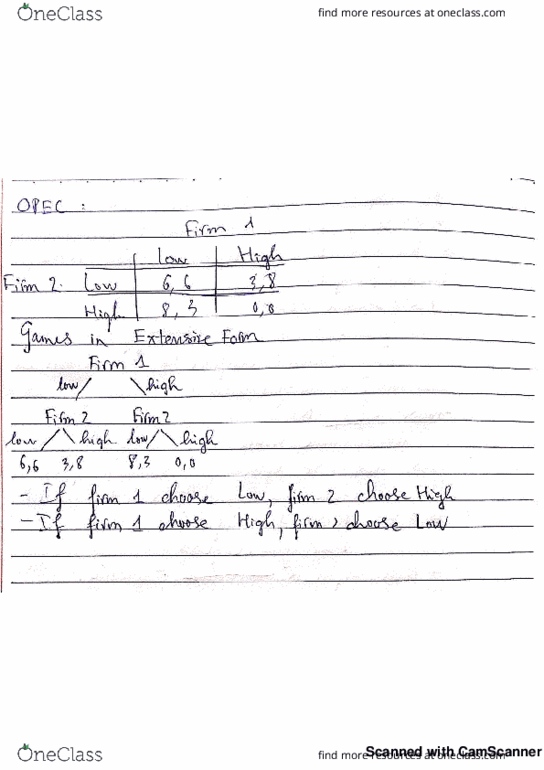 OneClass
find more resources at oneclass.com
OPEC :
Firm 1
Low High
Firm 2. Low 6,6 3,8
High 8,3 0,0
Games in Extensive Form
Firm 1
low high
Firm 2 Firm 2
low high low high
6,6 3,8 8,3 0,0
- If firm 1 choose Low, firm 2 choose High
- If firm 1 choose High, firm 2 choose Low
OneClass
find more resources at oneclass.com
Scanned with CamScanner